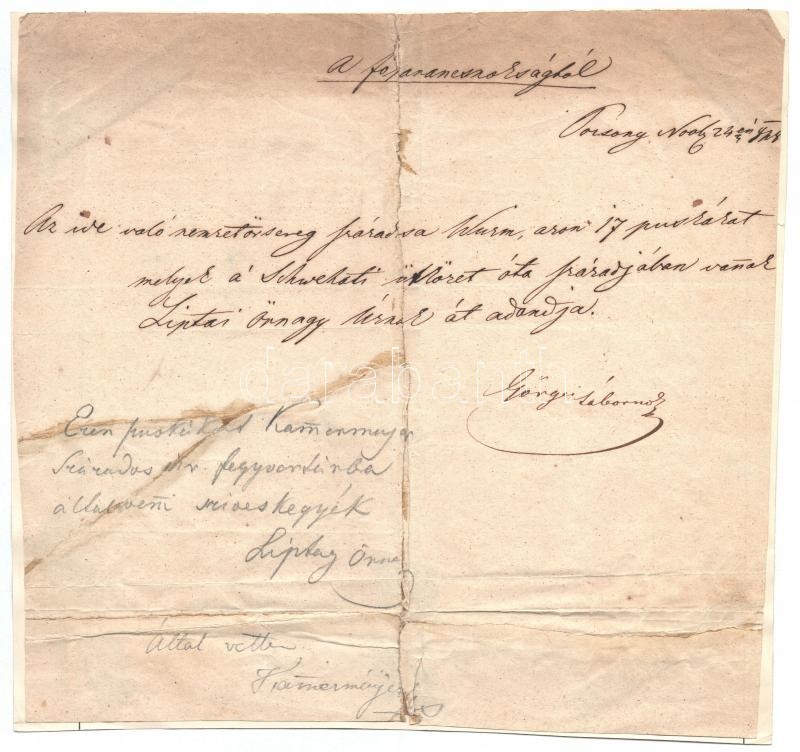 A főparancsnokságtól
Posony Nov 24 én
Az ide való nemzetőrsereg százada Wurm, azon 17 puskákat
melyek a Schwekati ütközet óta századjában vannak
Liptai Őrnagy Úrnak át adandja.
Görgei tábornok
Ezen puskákat Kamermayer
Százados úr fegyvertárba
által venni szíveskegyék
Liptay Őrna
Által vettem
Kamermayer
darabanth